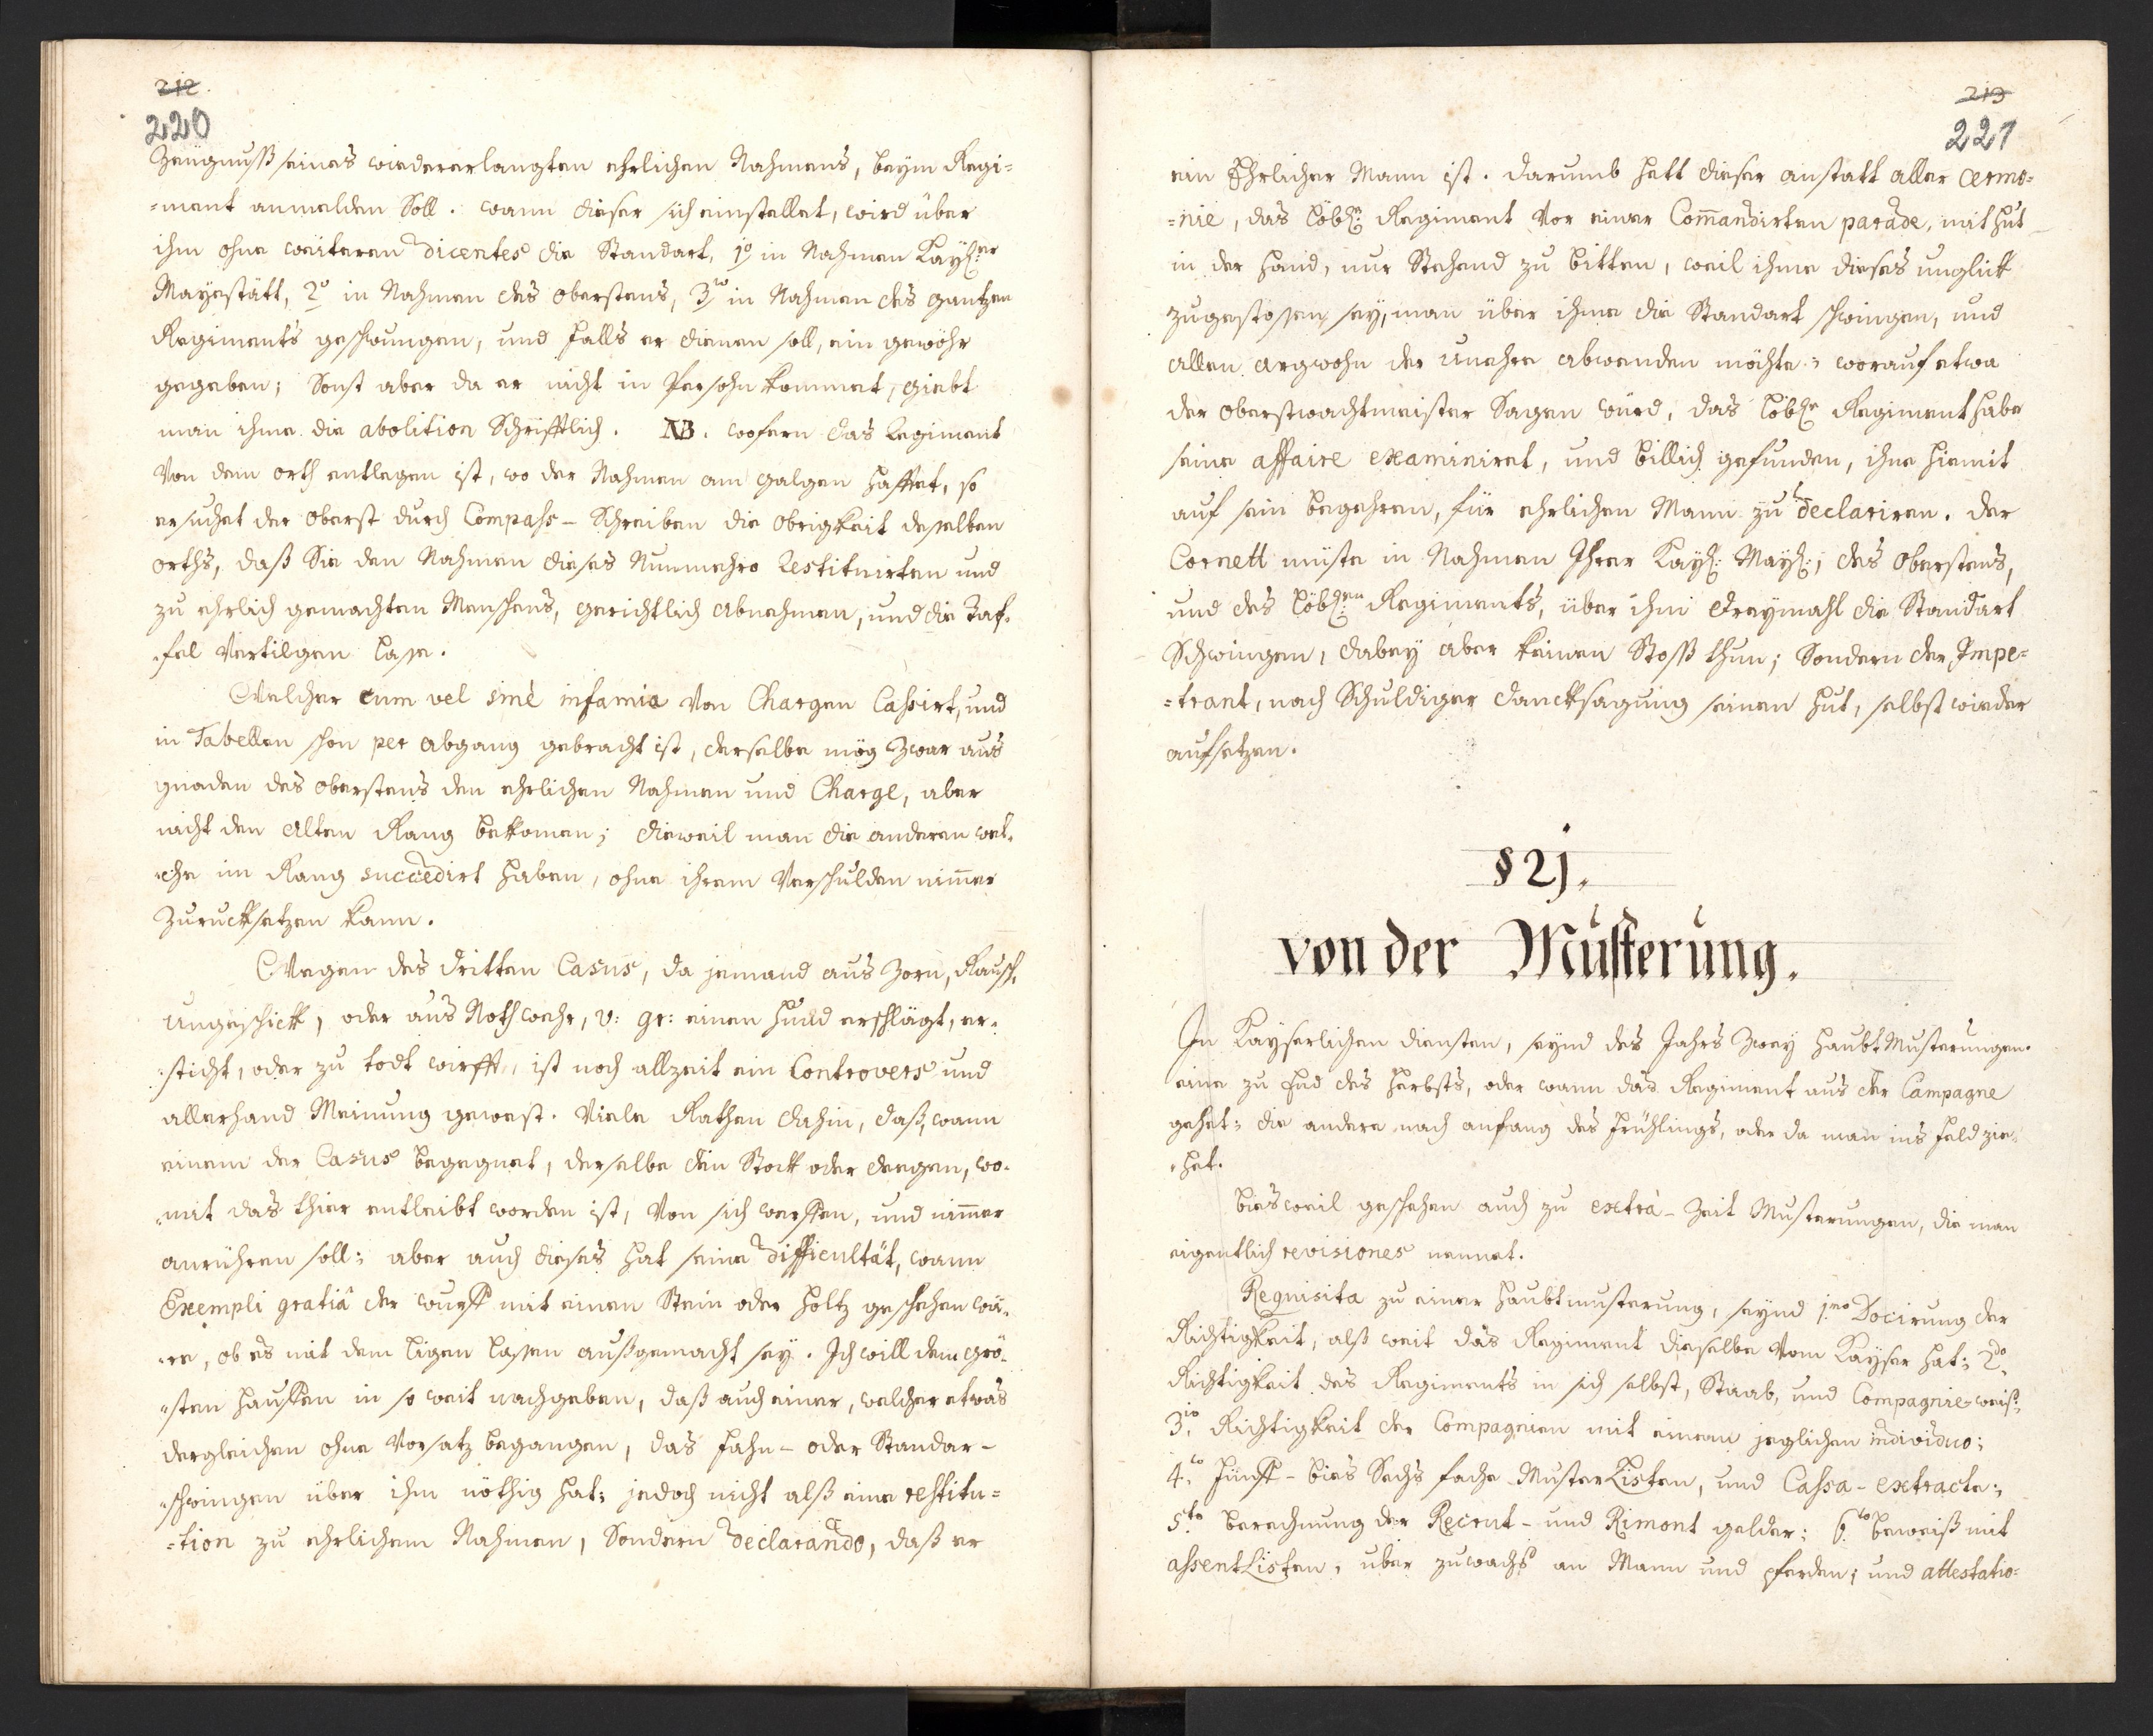 212.
220
Zeugnuß seines wiedererlangten ehrlichen Nahmens, beym Regi=
=ment anmelden Soll. wann dieser sich einstellet, wird über
ihm ohne weiteren dicentes die Standart, 1º in Nahmen Kayßer
Mayestätt, 2º in Nahmen des oberstens, 3tio in Nahmen des gantzen
Regiments geschwungen, und falls er dienen soll, ein gewöhr
gegeben; Sonst aber da er nicht in Persohn kommet, giebt
man ihme die abolition Schrifftlich. NB. wofern das Regiment
Von dem orth entlegen ist, wo der Nahmen am galgen hafftet, so
ersuchet der Oberst durch Compass-Schreiben die Obrigkeit deselben
orths, daß Sie den Nahmen dieses Nunmehro Restituirten und
zu ehrlich gemachten Menschens, gerichtlich abnehmen, und die Taf=
=fel Vertilgen lasse.
Welcher cum vel sinè infamia Von Chargen Cassirt, und
in Tabellen schon per abgang gebracht ist, derselbe mög zwar aus
gnaden des oberstens den ehrlichen Nahmen und Charge, aber
nicht den Alten Rang bekomen; dieweil man die anderen wel=
=che im Rang succedirt haben, ohne ihrem Verschulden nim̄er
Zurucksetzen kann.
Wegen des dritten Casus, da jemand aus Zorn, Rausch,
Ungeschick, oder aus Nothwehr, v: gr: einen Hund erschlägt, er=
=sticht, oder zu todt wirfft, ist noch allzeit ein Controvers und
allerhand Meinung gewest. Viele Rathen dahin, daß, wann
einem der Casus begegnet, derselbe den Stock oder degen, wo=
=mit das thier entleibt worden ist, Von sich werffen, und nim̄er
anrühren soll: aber auch dieses hat seine difficultät, wann
Exempli gratiâ der wurff mit einen Stein oder Holtz geschehen wä=
=re, ob es mit dem ligen lassen außgemacht sey. Ich will dem grö=
=sten hauffen in so weit nachgeben, daß auch einer, welcher etwas
dergleichen ohne Vorsatz begangen, das Fahn- oder Standar-
=schwingen über ihm nöthig hat; jedoch nicht alß eine restitu=
=tion zu ehrlichem Nahmen, Sondern declarando, daß er
213
221
ein Ehrlicher Mann ist. darumb hatt dieser anstatt aller cermo=
=nie, das löbl: Regiment Vor einer Com̄andirten parade, mit Hut
in der Hand, nur Stehend zu bitten, weil ihme dieses unglick
zugestossen sey, man über ihme die Standart schwingen, und
allen argwohn der Unehre abwenden möchte: worauf etwa
der oberstwachtmeister Sagen würd, das löble Regiment habe
seine affaire examiniret, und billich gefunden, ihne hiemit
auf sein begehren, für ehrlichen Mann zu declariren. der
Cornett müste in Nahmen Ihrer Kayß: Mayß:, des Oberstens,
und des löblen Regiments, über ihm dreymahl die Standart
Schwingen, dabey aber keinen Stoß thun; Sondern der Impe=
=trant, nach Schuldiger dancksagung seinen Hut, selbst wieder
aufsetzen.
§ 21.
von der Musterung.
In Kayserlichen diensten, seynd des Jahrs Zwey HaubtMusterungen.
eine zu End des Herbsts, oder wann das Regiment aus der Campagne
gehet: die andere nach anfang des Frühlings, oder da man ins Feld zie=
=het.
bisweil geschehen auch zu extrà-Zeit Musterungen, die man
eigentlich revisiones nennet.
Requisita zu einer Haubtmusterung, seynd 1mo Docirung der
Richtigkeit, alß weit das Regiment dieselbe Vom Kayser hat; 2do
Richtigkeit des Regiments in sich selbst, Staab, und Compagnie-weiß;
3tio Richtigkeit der Compagnien mit einem jeglichen individuo;
4to Fünff- bis Sechs fache MusterListen, und Cassa-extracte;
5to berechnung der Recrut- und Rimont gelder; 6to beweiß mit
assentListen, uber zuwachs an Mann und pferden; und attestatio=